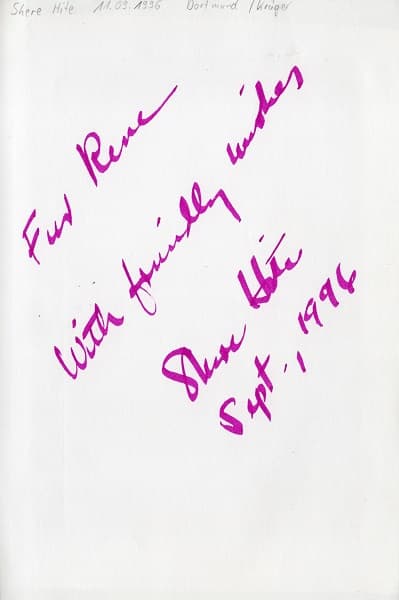 Shere Hite 11.09.1996 Dortmund /Krüger
Für Rene
With friendly wishes
Shere Hite
Sept., 1996